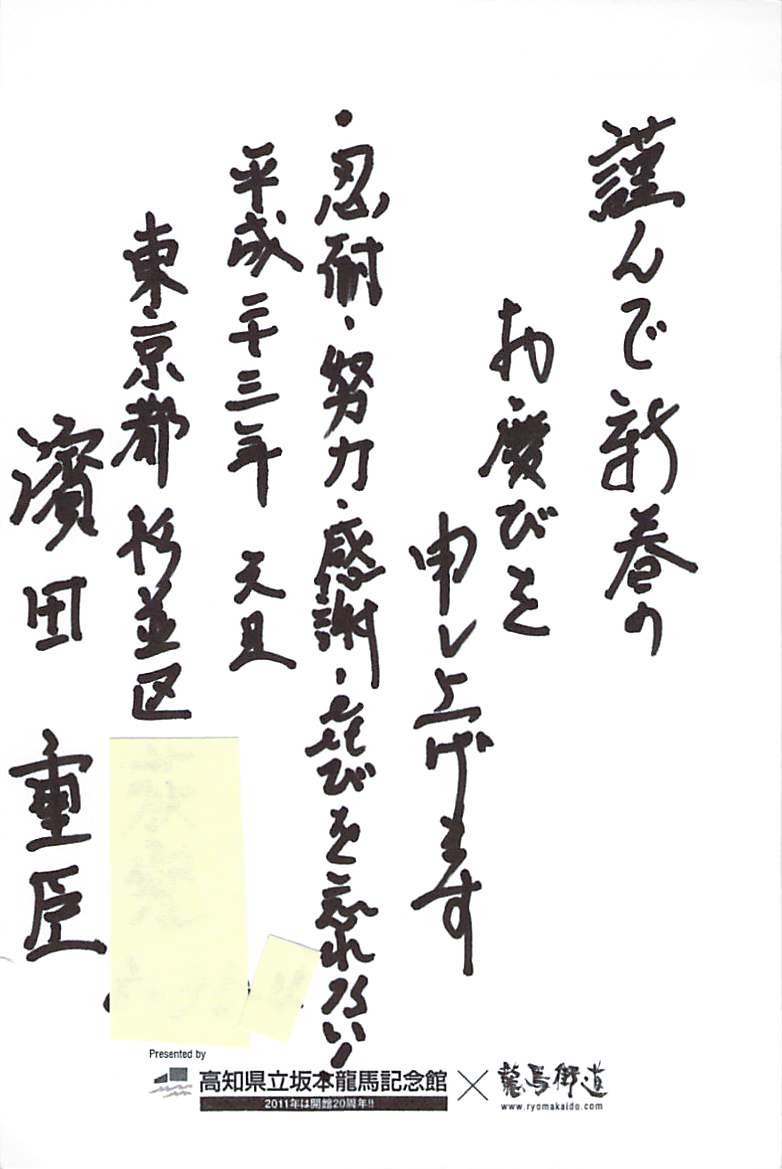 謹んで新春の
お慶びを
申し上げます
・忍耐・努力・感謝・㐂びを忘れない!
平成二十三年 元旦
東京都杉並区
濱田 重臣
Presented by
高知県立坂本龍馬記念館 × 龍馬街道
2011年は開館20周年!!
www.ryomakaido.com